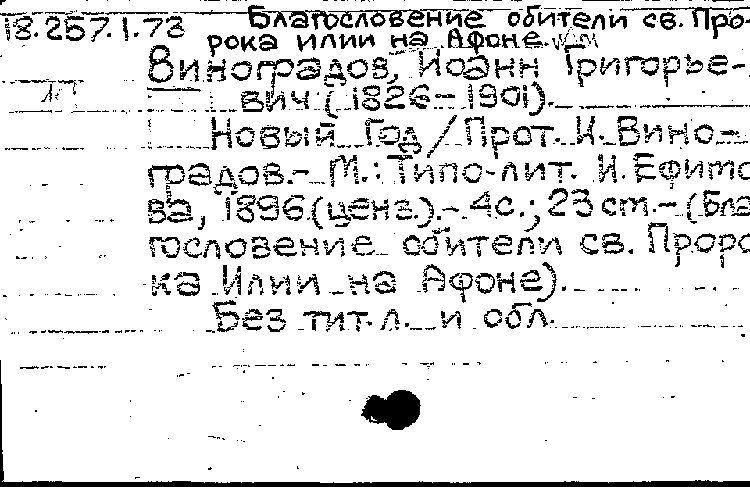 18.257.1.73 Благословение обители св. Про-
рока илии на Афоне.
Виноградов, Иоанн Григорье-
вич (1826-1901).
Новый Год / Прот. И. Вино-
градов.- М.: Типо-лит. И. Ефимо
ва, 1896 (ценз.).- 4с.; 23 ст.- (Бла
гословение обители св. Проро
ка Илии на Афоне).
Без тит. л. и обл.